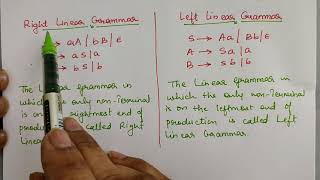 Right Linear Grammar
→ aA / bB / ε
→ aS / a
→ bS / b
The Linear Grammar in
which the only non-Terminal
is on rightmost end of
production is called Right
Linear
Left Linear Grammar
S → Aa / Bb / ε
A → Sa / a
B → Sb / b
The Linear Grammar in
which the only non-Terminal
is on the leftmost end of
production is called Left
Linear Grammar.